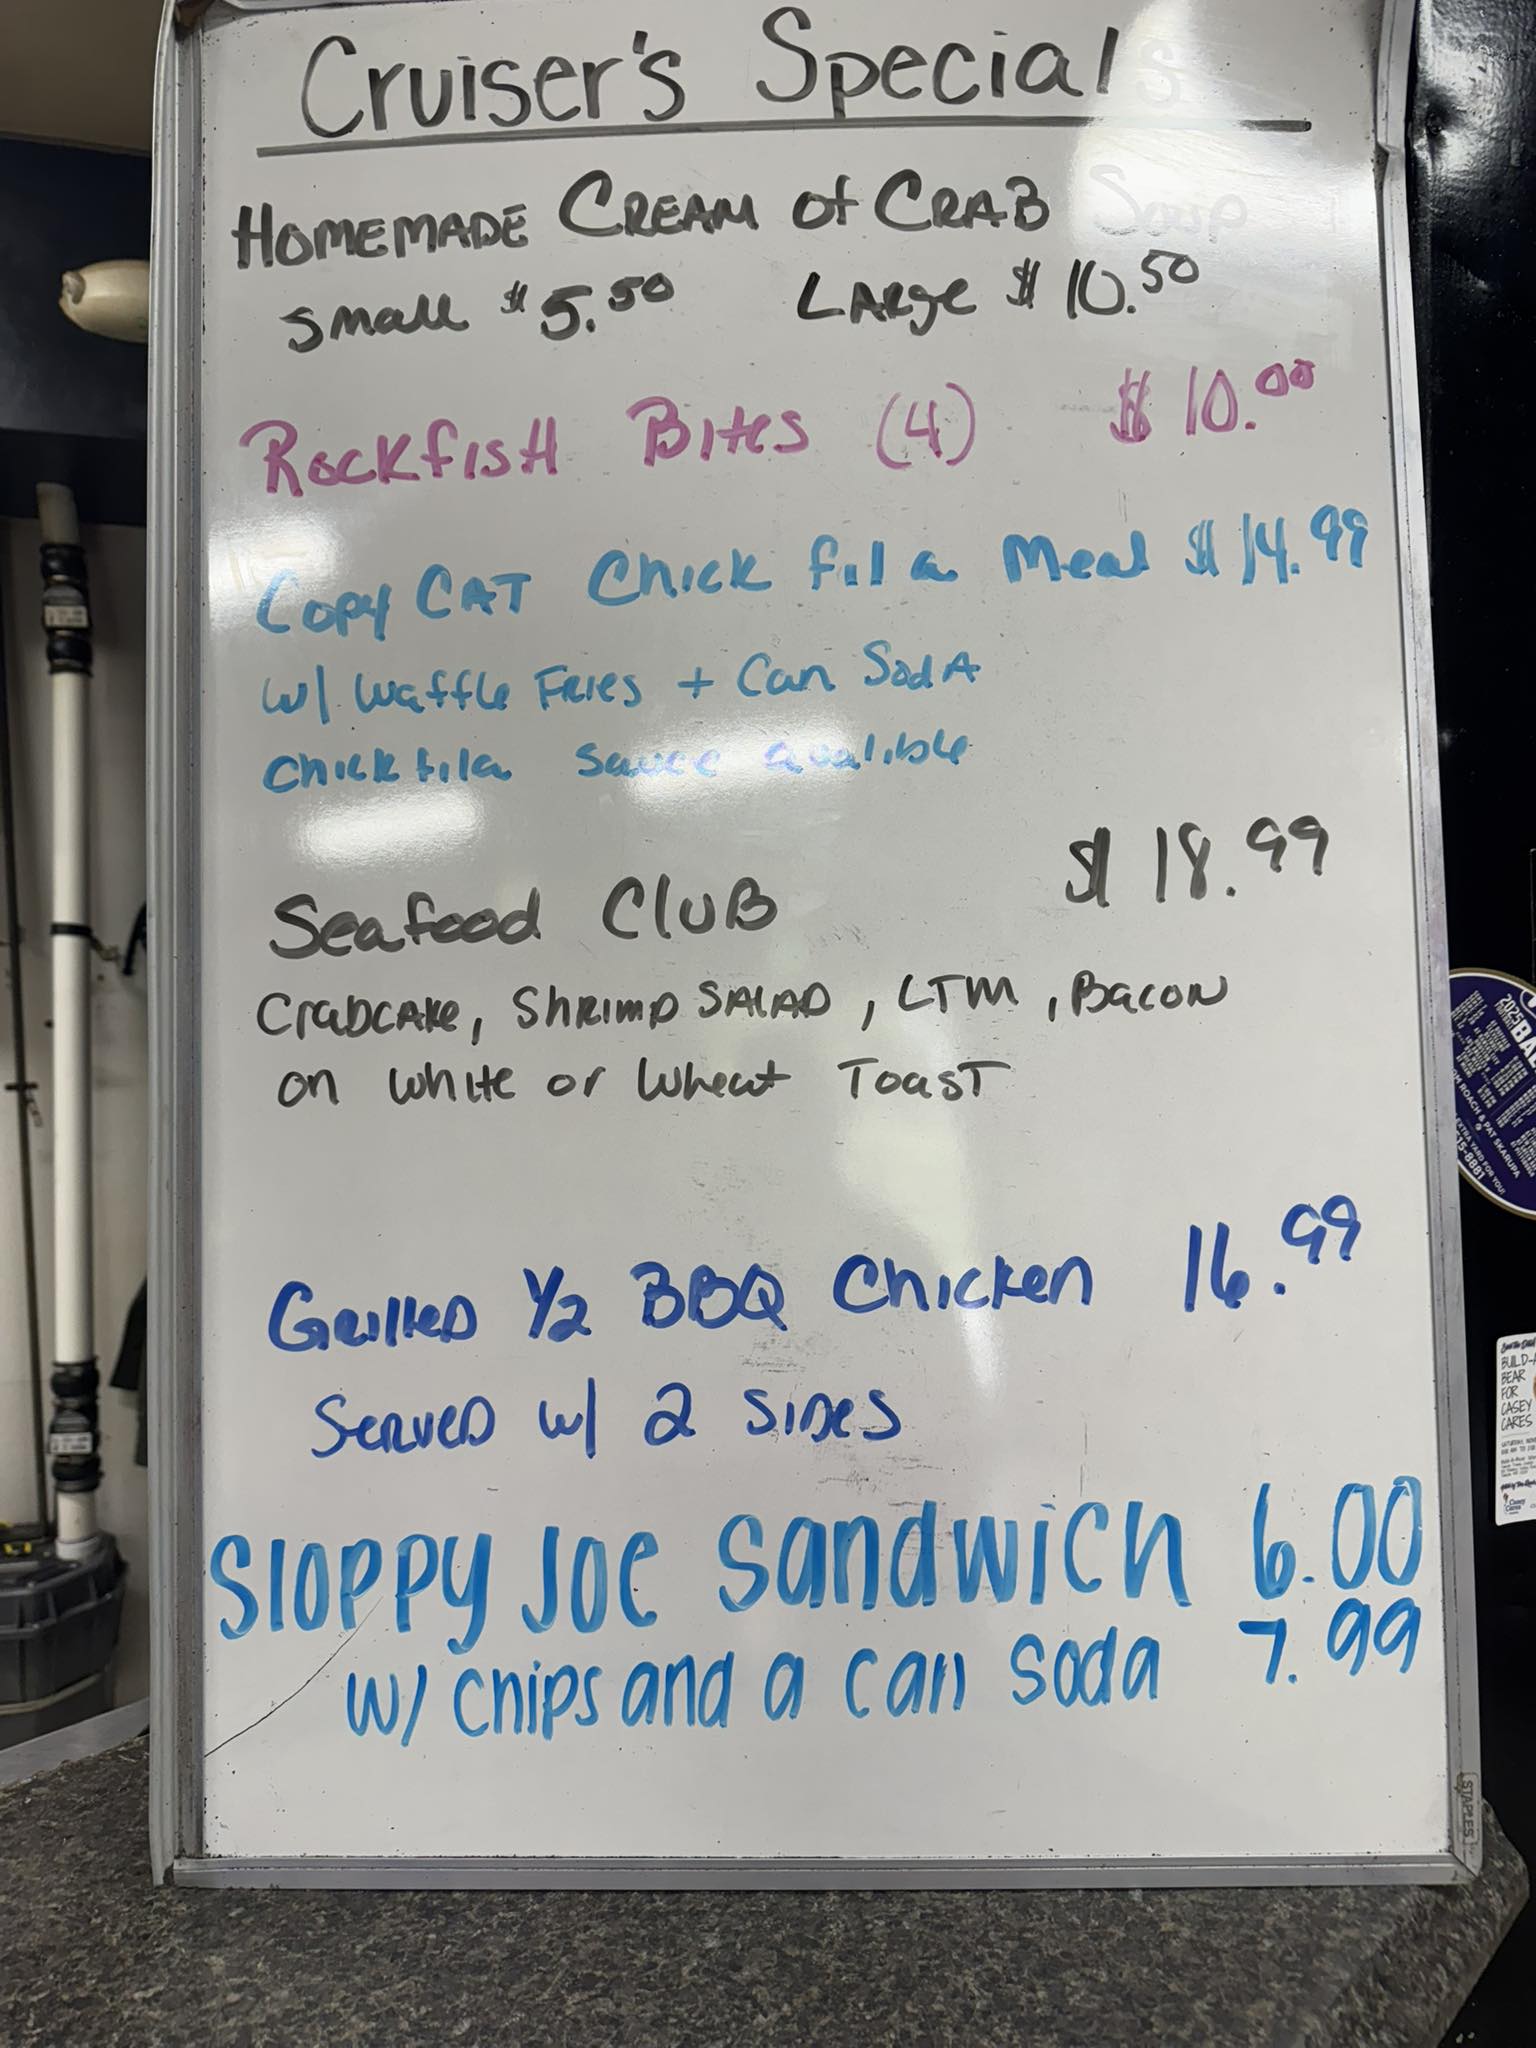 Cruiser's Specials
Homemade Cream of Crab Soup
Small $5.50 Large $10.50
Rockfish Bites (4) $10.00
Copy Cat Chick fil a Meal $14.99
w/ Waffle Fries + Can Soda
Chick fil a sauce avalible
Seafood Club $18.99
Crabcake, Shrimp Salad, LTM, Bacon
on White or Wheat Toast
Grilled 1/2 BBQ Chicken 16.99
Served w/ 2 Sides
Sloppy Joe Sandwich 6.00
w/ chips and a can soda 7.99
STAPLES
2025
ROACH & PAT SKARUPA
EXTRA YARD FOR YOU!
15-8881
BUILD-A
BEAR
FOR
CASEY
CARES